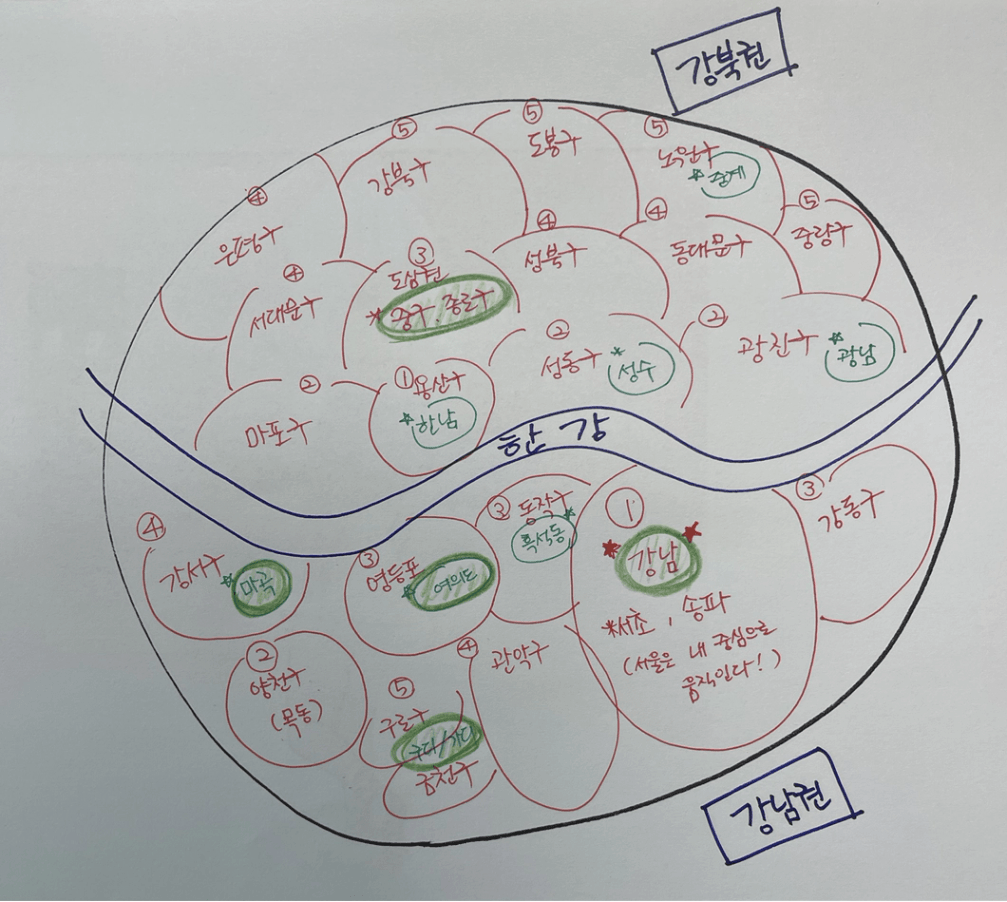 강북권
⑤
도봉구
⑤
강북구
⑤
노원구
*중계
④
은평구
⑤
중랑구
④
서대문구
③
도심권
*중구, 종로구
④
성북구
④
동대문구
②
마포구
①용산구
*한남
②
성동구
*성수
②
광진구
*광남
한강
④
강서구
*마곡
③
영등포
*여의도
② 동작구
*흑석동
①
*강남*
*서초, 송파
(서울은 내 중심으로
움직인다!)
③
강동구
②
양천구
(목동)
⑤
구로구
구디/가디
금천구
④
관악구
강남권